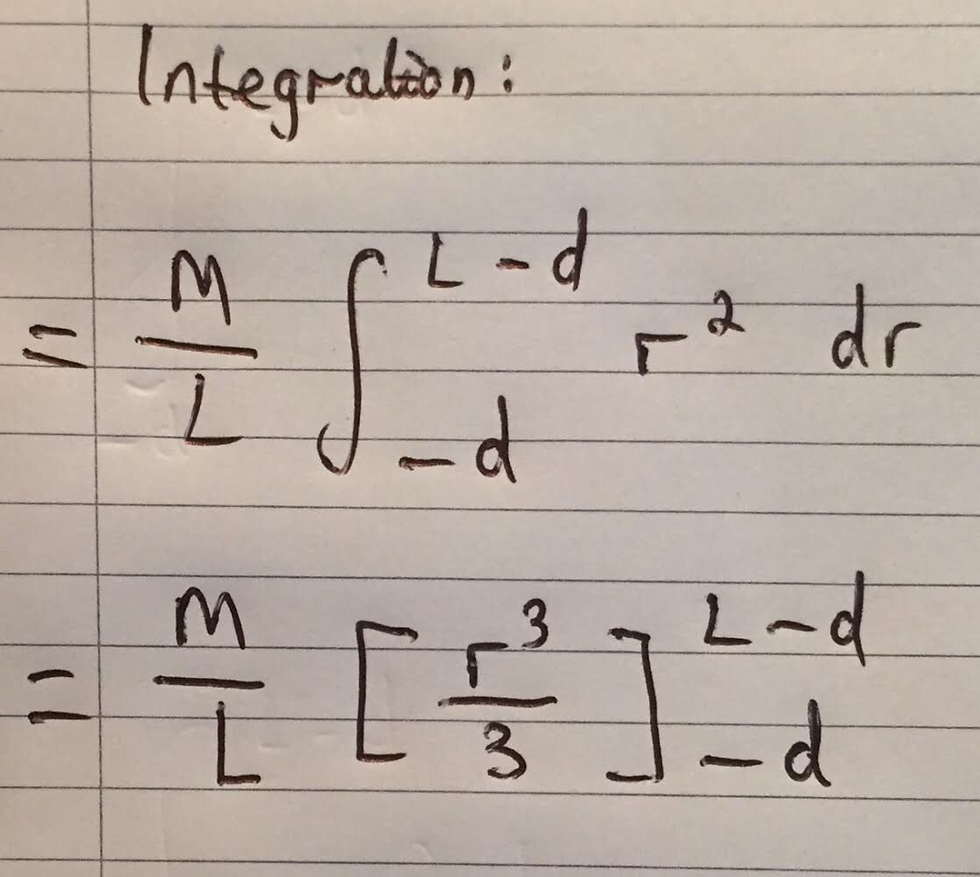 Integration:
= M/L ∫_{-d}^{L-d} r² dr
= M/L [r³/3]_{-d}^{L-d}